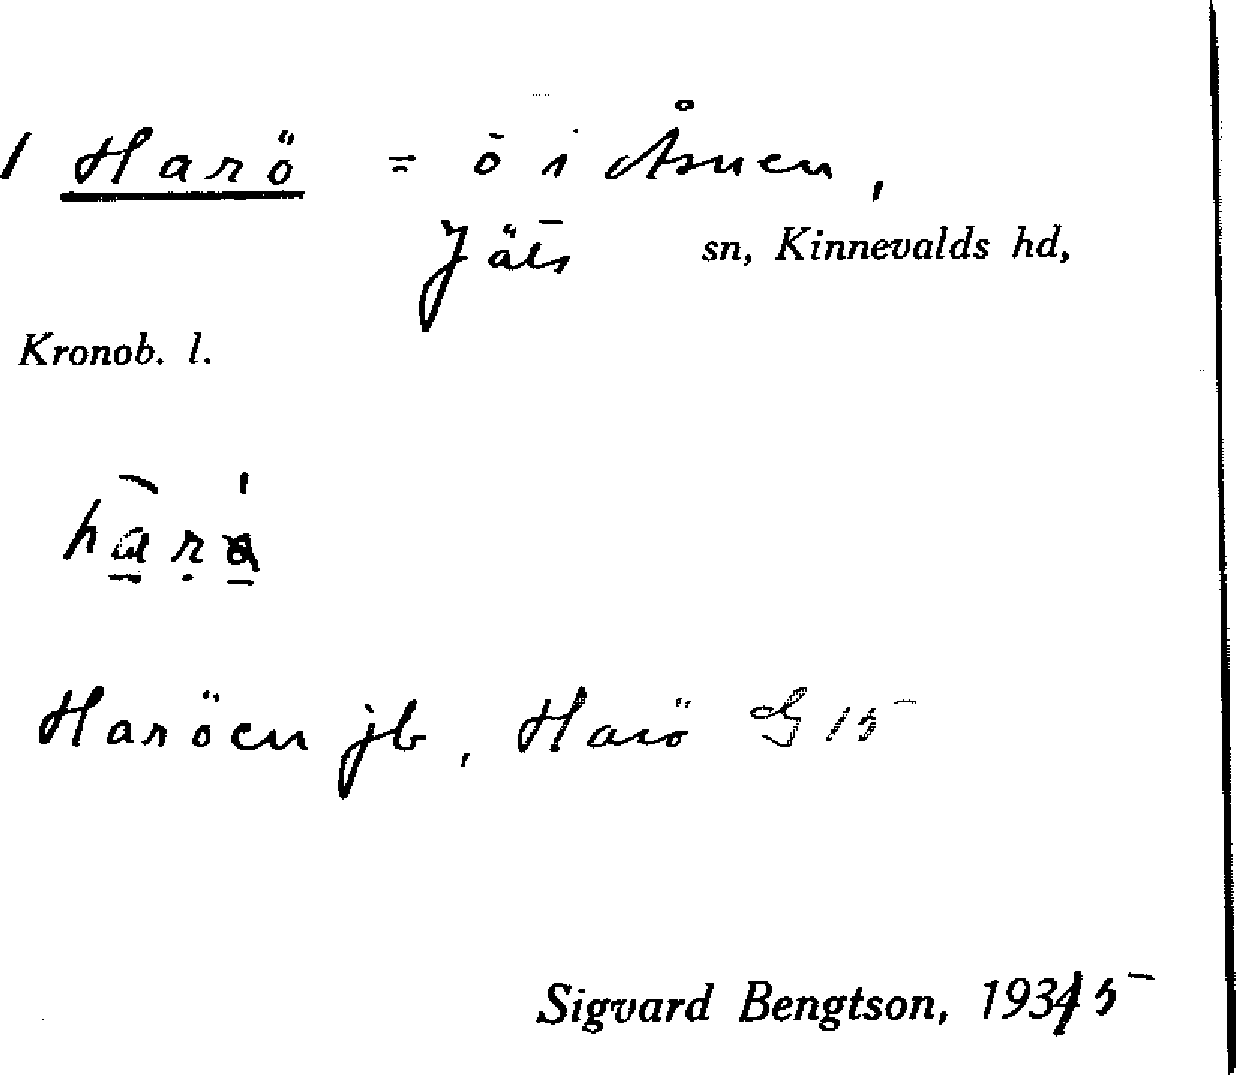 1 Harö = ö i Åsnen,
Jäts sn, Kinnevalds hd,
Kronob. l.
Haröen jb, Harö G 15
Sigvard Bengtson, 1935